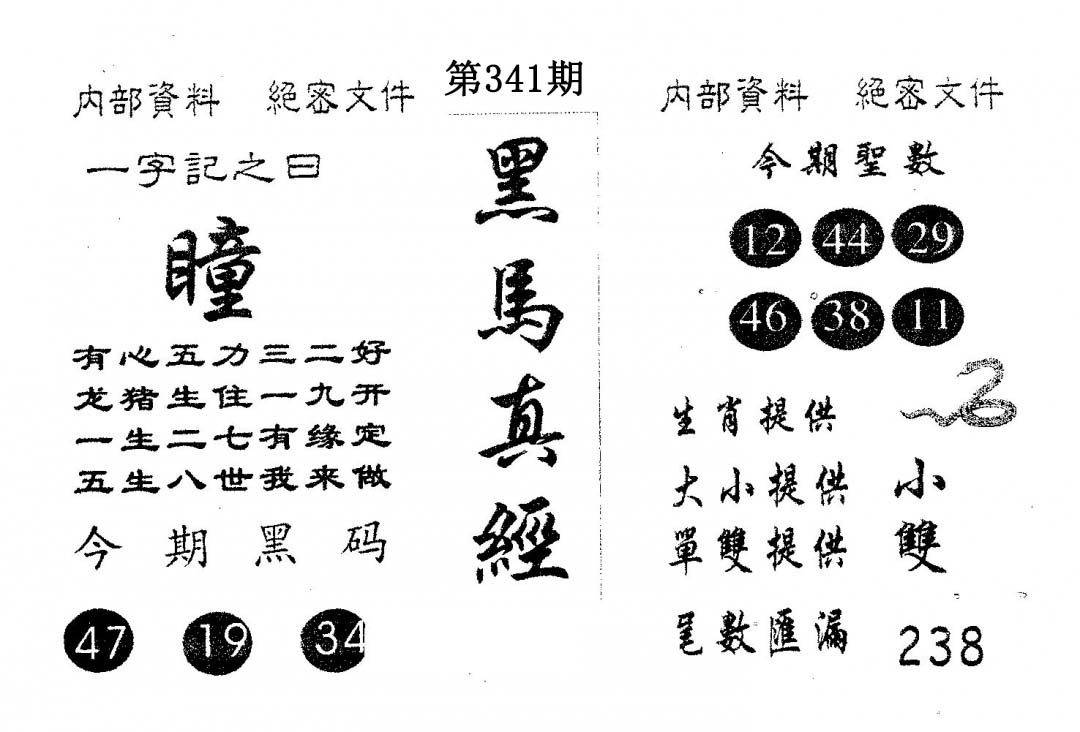 第341期
内部資料 絕密文件
一字記之曰
瞳
有心五力三二好
龙猪生住一九开
一生二七有缘定
五生八世我来做
今期黑码
47 19 34
黑馬真經
内部資料 絕密文件
今期聖數
12 44 29
46 38 11
生肖提供
大小提供 小
單雙提供 雙
尾數匯漏 238